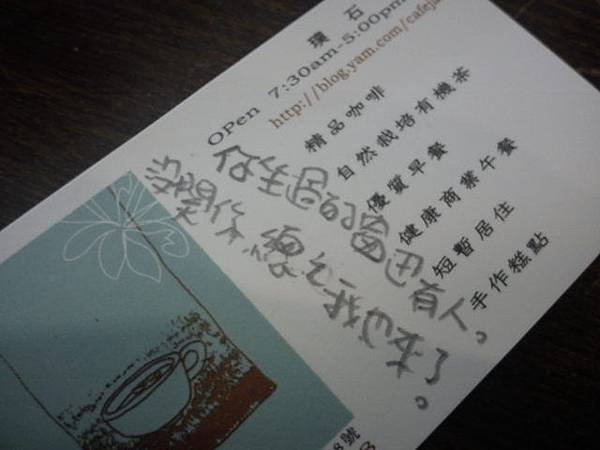 璞石
OPen 7:30am-5:00pm
http://blog.yam.com/cafeja
精品咖啡
自然栽培有機茶
優質早餐
健康商業午餐
短暫居住
手作糕點
你坐過的窗邊有人，
我也來了。
8號